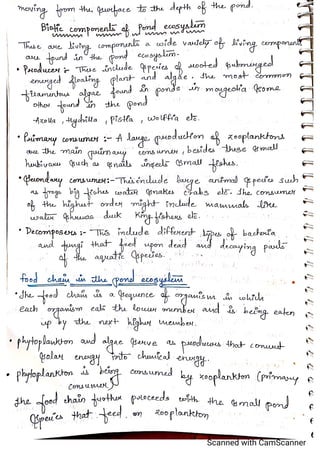 moving from the surface to the depth of the pond.
Biotic components of Pond ecosystem
These are living components a wide variety of living component
are found in the pond ecosystem.
• Producers :- These include species of rooted submerged
emerged floating plant and algae. The most common
filamentous algae found in ponds is mougeotia some
other found in the pond
-Azolla, Hydrilla, Pistia, Wolffia etc.
• Primary consumer :- A large production of zooplanktons
are the main primary consumer, besides these small
herbivores such as snails insects small fishes.
• Secondary consumer:- This include large animal species such
as frogs big fishes water snakes crabs etc. The consumer
of the highest order might include mammals like
water shrews duck king fishers etc.
• Decomposers :- This include different types of bacteria
and fungi that feed upon dead and decaying parts
of the aquatic species.
food chain in the pond ecosystem
• The food chain is a sequence of organisms in which
each organism eats the lower member and is being eaten
up by the next higher member.
• phytoplankton and algae serve as producers that convert
solar energy into chemical energy.
• phytoplankton is being consumed by zooplankton (primary
consumer)
The food chain further proceeds with the small pond
species that feed on zooplankton
Scanned with CamScanner